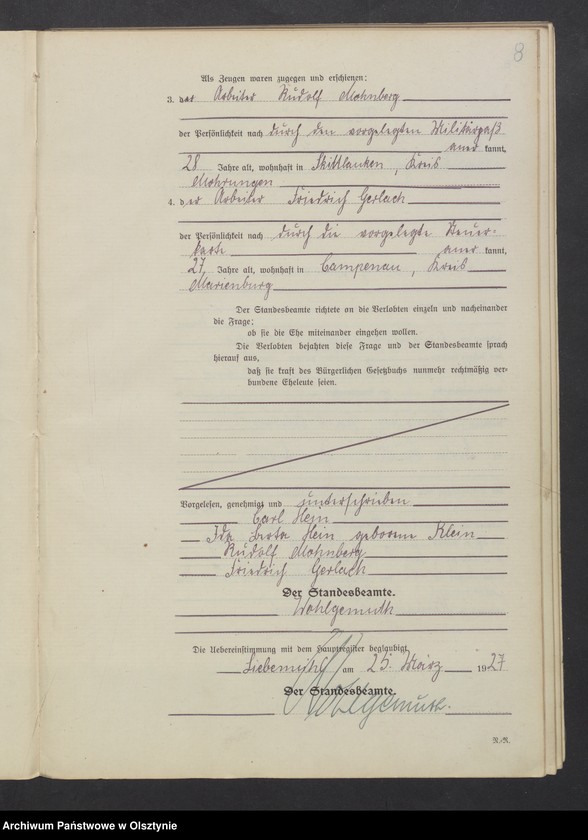 8
Als Zeugen waren zugegen und erschienen:
3. der Arbeiter Rudolf Mohnberg
der Persönlichkeit nach durch den vorgelegten Militärpaß
aner kannt,
28 Jahre alt, wohnhaft in Skittlauken, Kreis
Mohrungen
4. der Arbeiter Friedrich Gerlach
der Persönlichkeit nach durch die vorgelegte Steuer-
karte aner kannt,
27 Jahre alt, wohnhaft in Campenau, Kreis
Marienburg
Der Standesbeamte richtete an die Verlobten einzeln und nacheinander
die Frage:
ob sie die Ehe miteinander eingehen wollen.
Die Verlobten bejahten diese Frage und der Standesbeamte sprach
hierauf aus,
daß sie kraft des Bürgerlichen Gesetzbuchs nunmehr rechtmäßig ver-
bundene Eheleute seien.
Vorgelesen, genehmigt und unterschrieben
Carl Hein
Ida Berta Hein geborene Klein
Rudolf Mohnberg
Friedrich Gerlach
Der Standesbeamte.
Wohlgemuth
Die Uebereinstimmung mit dem Hauptregister beglaubigt
Liebemühl am 25. März 1927
Der Standesbeamte.
Wohlgemuth.
R./R.
Archiwum Państwowe w Olsztynie